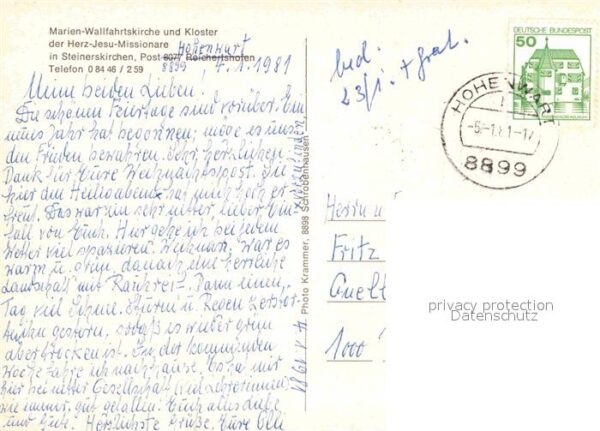 Marien-Wallfahrtskirche und Kloster
der Herz-Jesu-Missionare
in Steinerskirchen, Post 8071 Reichertshofen
Hohenwart
8899
Telefon 0 84 46 / 2 59
7.1.1981
Meine beiden Lieben!
Die schönen Feiertage sind vorüber. Ein
neues Jahr hat begonnen, möge es uns
den Frieden bewahren. Sehr herzlichen
Dank für Eure Weihnachtspost. Die
hier am Heiligabend hat mich hoch er-
freut. Das war ein sehr netter, lieber Ein-
fall von Euch. Hier gehe ich bei jedem
Wetter viel spazieren. Weihnachten war es
warm u. grün, danach eine herrliche
Landschaft mit Rauhreif. Dann einen
Tag viel Schnee. Sturm u. Regen
gestern, sodaß es wieder grün
aber trocken ist. In der kommenden
Woche fahre ich nach Hause. Es hat mir
hier bei netter Gesellschaft (viel Lehrerinnen)
wie immer, gut gefallen. Euch alles Liebe
und Gute. Herzlichste Grüße, Eure Elli
Photo Krammer, 8898 Schrobenhausen
bed.
23/1. + grat.
DEUTSCHE BUNDESPOST
50
HOHENWART
8899
Herrn u
Fritz
Quelt
1000
privacy protection
Datenschutz